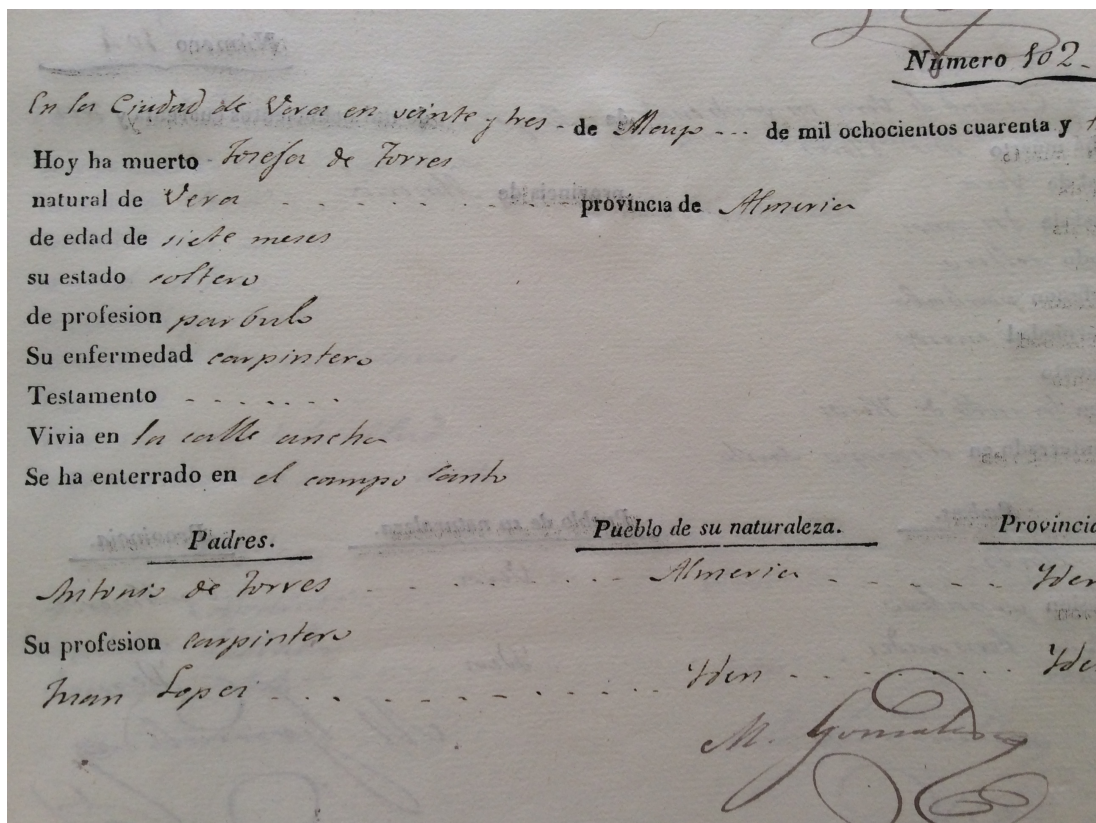 Número 102.
En la Ciudad de Vera en veinte y tres - de Mayo --- de mil ochocientos cuarenta y
Hoy ha muerto Josefa de Torres
natural de Vera - - - - - - - - - - provincia de Almeria
de edad de siete meses
su estado soltero
de profesion parbulo
Su enfermedad carpintero
Testamento - - - - - - -
Vivia en la calle ancha
Se ha enterrado en el campo santo
Padres. Pueblo de su naturaleza. Provincia
Antonio de Torres - - - - - - - - Almeria - - - - - - Yden
Su profesion carpintero
Juan Lopez - - - - - - - - - - - Yden - - - - - - Yden
M. Gonzalez